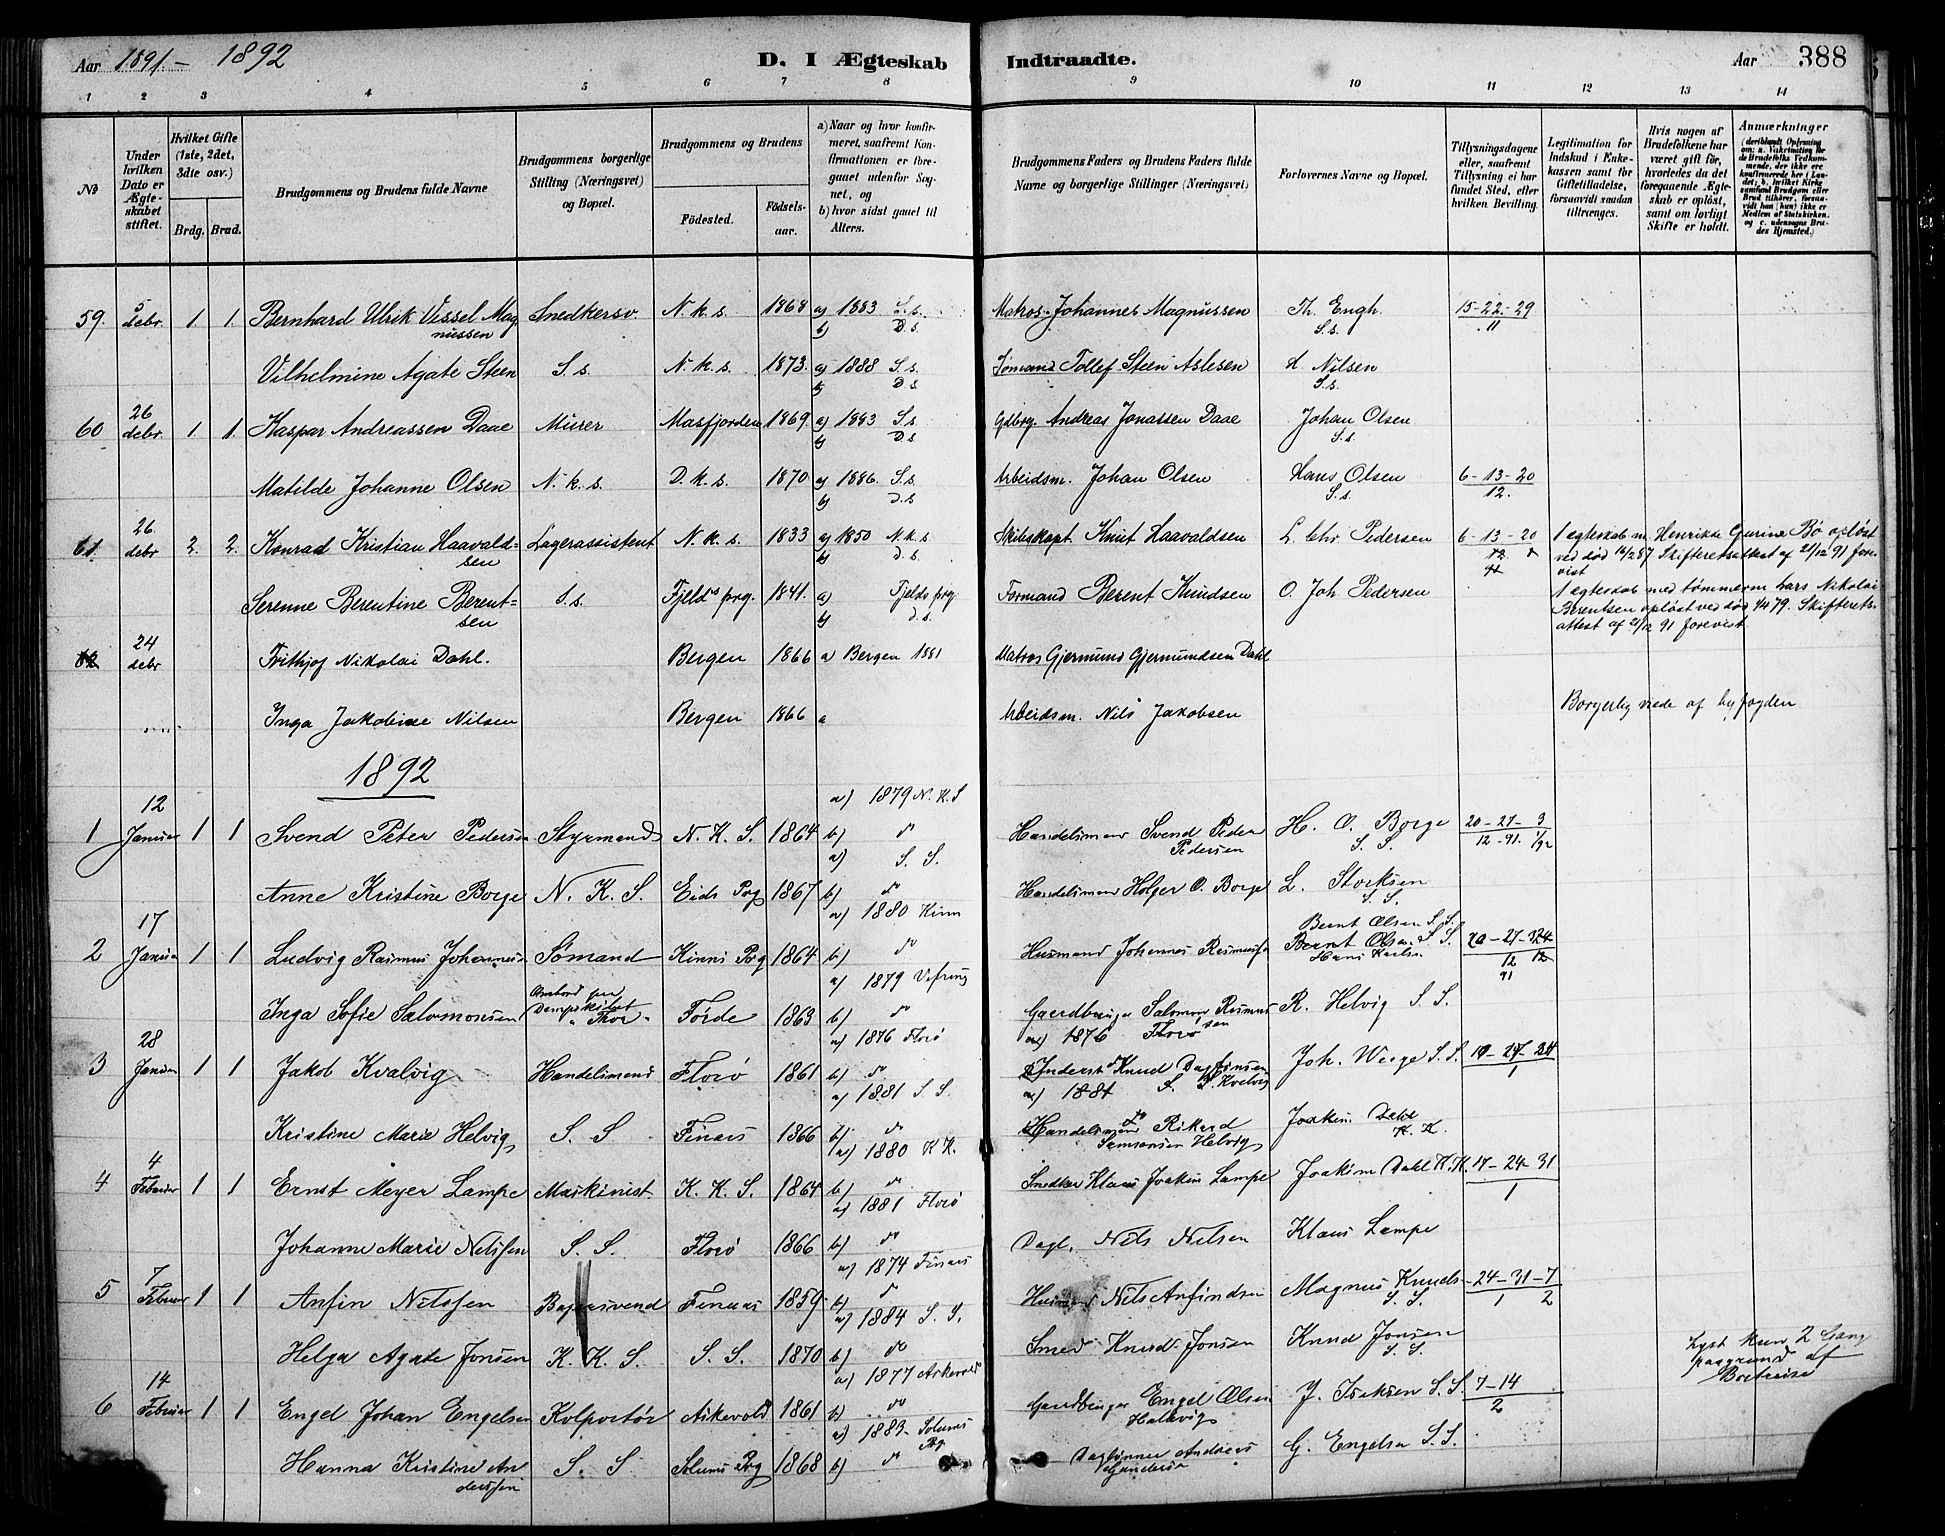 Aar 1891 - 1892
D. I Ægteskab Indtraadte.
Aar 388
1 2 3 4 5 6 7 8 9 10 11 12 13 14
No
Under hvilken Dato er Ægteskabet stiftet.
Hvilket Gifte (1ste, 2det, 3die osv.)
Brdg. Brud.
Brudgommens og Brudens fulde Navne
Brudgommens borgerlige Stilling (Næringsvei) og Bopæl.
Brudgommens og Brudens
Fødested. Fødselsaar.
a) Naar og hvor konfirmeret, saafremt Konfirmationen er foregaaet udenfor Sognet, og
b) hvor sidst gaaet til Alters.
Brudgommens Faders og Brudens Faders fulde Navne og borgerlige Stillinger (Næringsvei)
Forlovernes Navne og Bopæl.
Tillysningsdagene eller, saafremt Tillysning ei har fundet Sted, efter hvilken Bevilling.
Legitimation for Indskud i Enkekassen samt for Giftetilladelse, forsaavidt saadan tiltrænges.
Hvis nogen af Brudefolkene har været gift før, hvorledes da det foregaaende Ægteskab er opløst, samt om lovligt Skifte er holdt.
Anmærkninger
59. 5 debr. 1. 1. Bernhard Ulrik Vessel Magnussen Snedkersv. N. k. s. 1868 a) 1883 S. s. b) D. s. Matros Johannes Magnussen Th. Engh. S. s. 15-22-29 11
Vilhelmine Agate Steen S. s. N. k. s. 1873. a) 1888 S. s. b) D. s. Sømand Tollef Steen Aslesen Nilsen S. s.
60 26 debr. 1. 1. Kaspar Andreassen Daae Murer Masfjorden 1869. a) 1883 S. s. b) D. s. Gdbrg. Andreas Jonassen Daae Johan Olsen S. s.
Matilde Johanne Olsen N. k. s. D. k. s. 1870 a) 1886. S. s. b) D. s. Arbeidsm. Johan Olsen Hans Olsen S. s. 6-13-20 12.
61. 26 debr 2. 2. Konrad Kristian Haavaldsen Lagerassistent N. k. s. 1833 a) 1850 N. k. s. b) D. s. Skibskapt. Knut Haavaldsen L. Chr. Pedersen 6-13-20 12 Iægteskab m. Henrikke Gurine Bø opløst ved død 14/2 87 Skifteretsattest af 21/12 91 forevist
Serenne Berentine Berentsen S. s. Fjelds prg. 1841. a) Fjelds prg b) D. s. Formand Berent Knudsen O. Joh. Pedersen Iægteskab med tømmerm Lars Nikolai Berentsen opløst ved død 1/4 79. Skifteretsattest af 21/12 91 forevist
62 24 debr Frithjof Nikolai Dahl. Bergen 1866 a Bergen 1881 Matros Gjermund Gjermundsen Dahl
Inga Jakobine Nilsen Bergen 1866 a Arbeidsm. Nils Jakobsen Borgerlig viede af byfogden
1892
1 12 Januar 1 1 Svend Peter Pedersen Styrmand N. K. S. 1864 a) 1879 N. K. S b) do Handelsmand Svend Peder Pedersen H. O. Borge S. S. 20-27-3 12-91. 1/92
Anne Kristine Borge N. K. S. Eids Prg 1867 a) S. S. b) do Handelsmand Holger O. Borge L. Storksen S. S.
2 17 Januar 1 1 Ludvig Rasmus Johannesen Sømand Kinns Prg 1864 a) 1880 Kinn b) do Husmand Johannes Rasmussen Bernt Olsen S. S. Bernt Olsen S. S. 20-27- 12 91
Inga Sofie Salomonsen Ombord paa Dampskibet "Thor" Førde 1863 a) 1879 Vefring b) do Gaardbruger Salomon Rasmussen R. Helvig S. S.
3 28 Januar 1 1 Jakob Kvalvig Handelsmand Florø 1861 a) 1876 Florø b) do a) 1876 Florø Knud Dagfinsen Kvalvig Joh. Werge S. S. 1
Kristine Marie Helvig S. S Finaas 1866 a) 1881 S. S. b) do a) 1881 S. Handelsmand Rikard Samsonsen Helvig Joakim Dahl K. K.
4 4 Februar 1 1 Ernst Meyer Lampe Maskinist K. K. S. 1864 a) 1880 K K. b) do Snedker Klaus Joakim Lampe Joakim Dahl K. K. 17-24-31 1
Johanne Marie Nilssen S. S. Florø 1866 a) 1881 Florø b) do Dagl. Nils Nilsen Klaus Lampe
5 7 Februar 1 1 Anfin Nilssen Bagersvend Finaas 1859 a) 1874 Finaas b) do Husmand Nils Anfindsen Magnus Knuds S. S. 24-31-7 1 2
Helga Agate Jonsen K. K. S. S. S. 1870 a) 1884 S. S. b) do Smed Knud Jonsen Knud Jonsen S. S. Lyst kun 2 Gang paagrund af Bortreise
6 14 Februar 1 1 Engel Johan Engelsen Kolportør Askevold 1861 a) 1877 Askevold b) do Gaardbruger Engel Olsen J. Isaksen S. S. 7-14 2
Hanna Kristine Anderssen S. S Solums Prg 1868 a) 1883 Solums Prg b) do Daglønner Andreas G. Engelsen S. S.